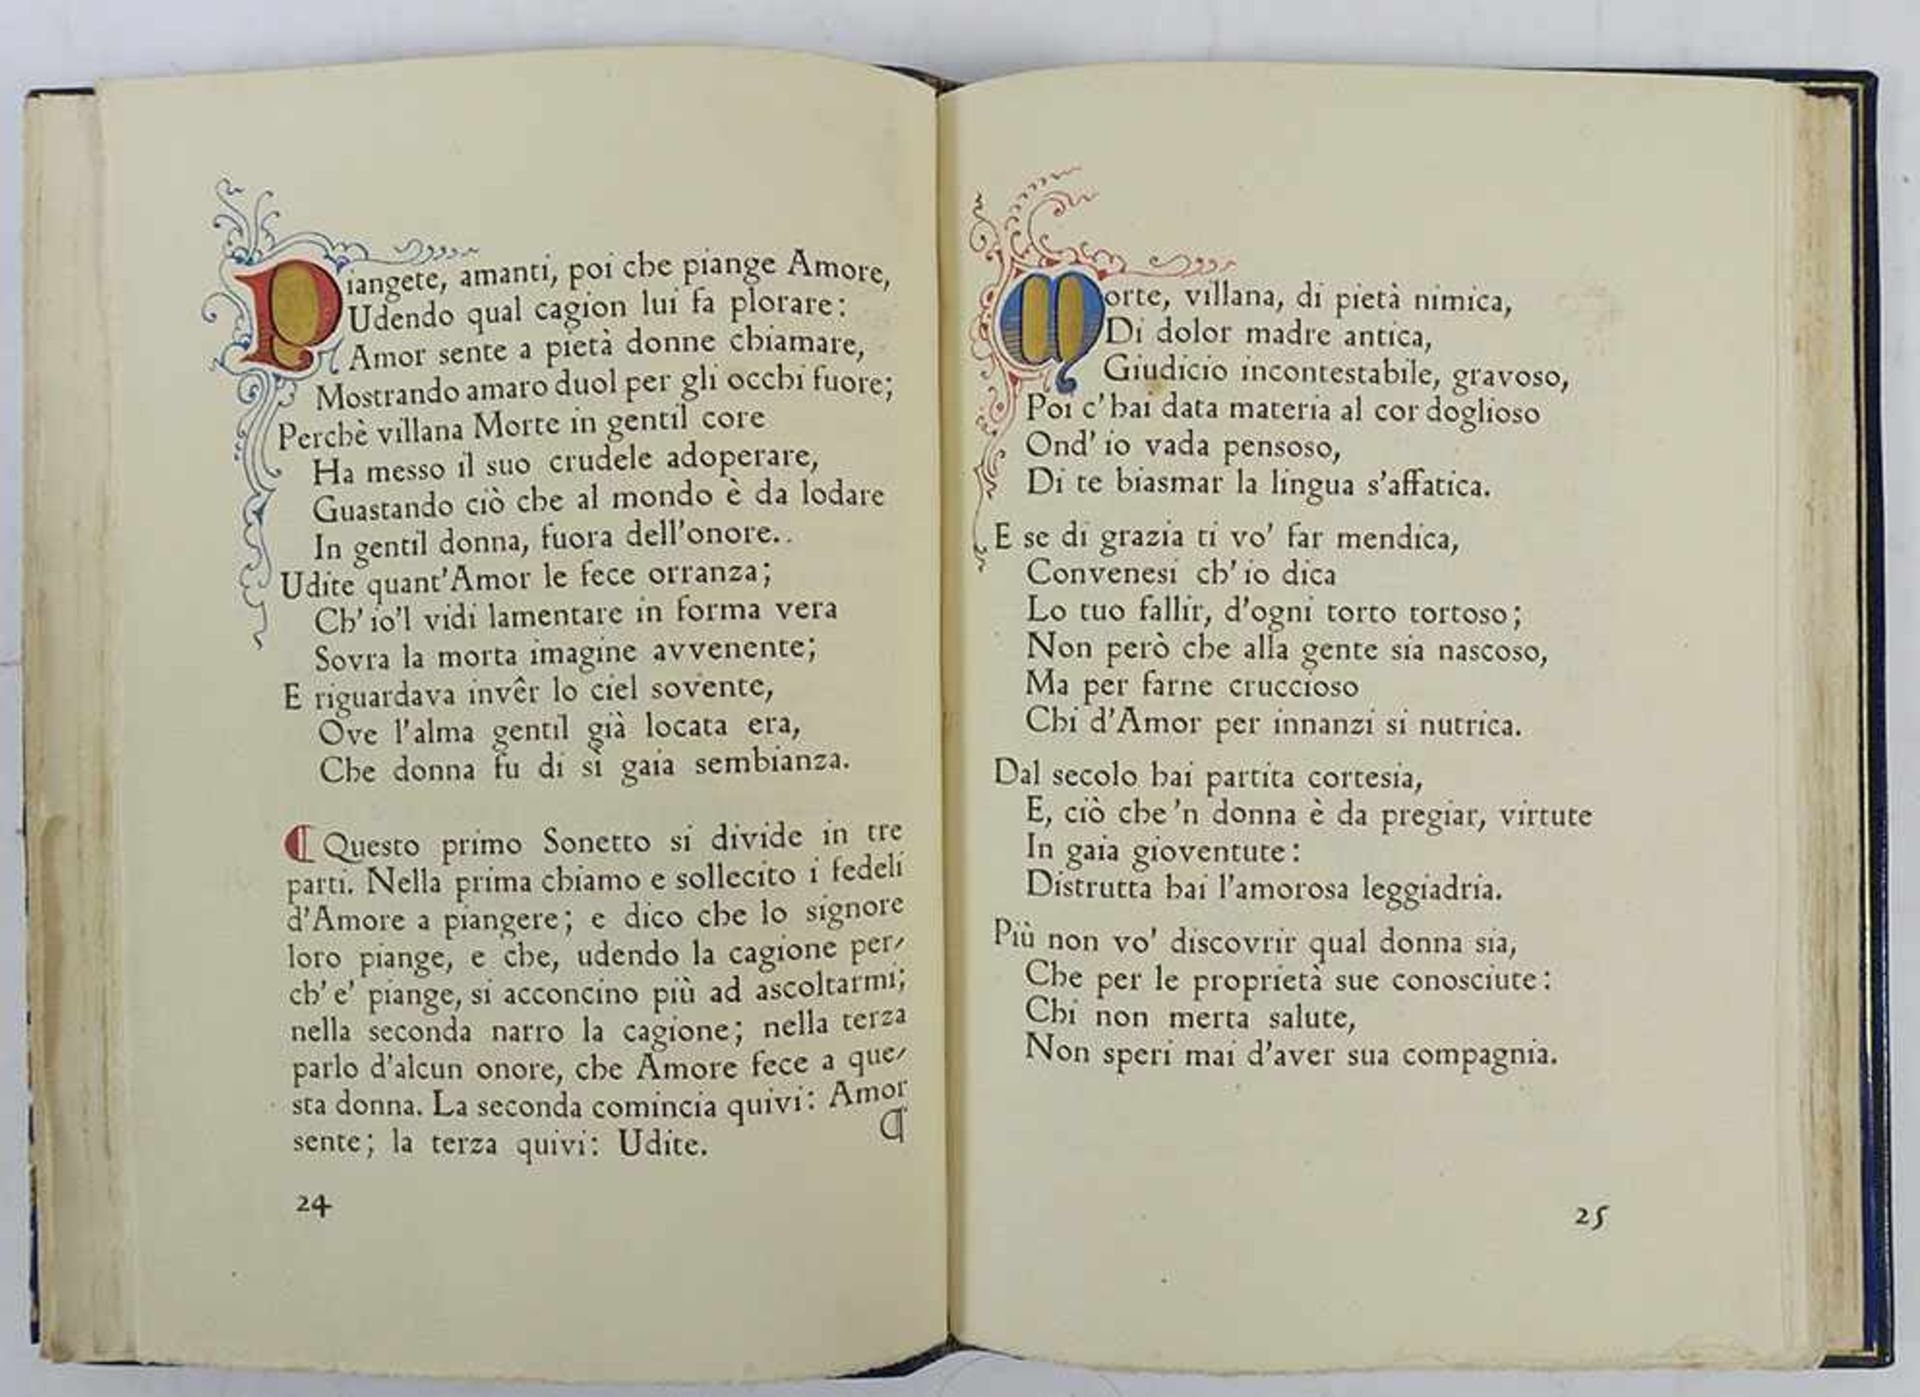 Piangete, amanti, poi che piange Amore,
Udendo qual cagion lui fa plorare:
Amor sente a pietà donne chiamare,
Mostrando amaro duol per gli occhi fuore;
Perchè villana Morte in gentil core
Ha messo il suo crudele adoperare,
Guastando ciò che al mondo è da lodare
In gentil donna, fuora dell'onore..
Udite quant'Amor le fece orranza;
Ch' io'l vidi lamentare in forma vera
Sovra la morta imagine avvenente;
E riguardava invêr lo ciel sovente,
Ove l'alma gentil già locata era,
Che donna fu di sì gaia sembianza.
¶ Questo primo Sonetto si divide in tre
parti. Nella prima chiamo e sollecito i fedeli
d'Amore a piangere; e dico che lo signore
loro piange, e che, udendo la cagione per-
ch' e' piange, si acconcino più ad ascoltarmi;
nella seconda narro la cagione; nella terza
parlo d'alcun onore, che Amore fece a que-
sta donna. La seconda comincia quivi: Amor
sente; la terza quivi: Udite. ¶
24
Morte, villana, di pietà nimica,
Di dolor madre antica,
Giudicio incontestabile, gravoso,
Poi c'hai data materia al cor doglioso
Ond' io vada pensoso,
Di te biasmar la lingua s'affatica.
E se di grazia ti vo' far mendica,
Convenesi ch' io dica
Lo tuo fallir, d'ogni torto tortoso;
Non però che alla gente sia nascoso,
Ma per farne cruccioso
Chi d'Amor per innanzi si nutrica.
Dal secolo hai partita cortesia,
E, ciò che 'n donna è da pregiar, virtute
In gaia gioventute:
Distrutta hai l'amorosa leggiadria.
Più non vo' discovrir qual donna sia,
Che per le proprietà sue conosciute:
Chi non merta salute,
Non speri mai d'aver sua compagnia.
25